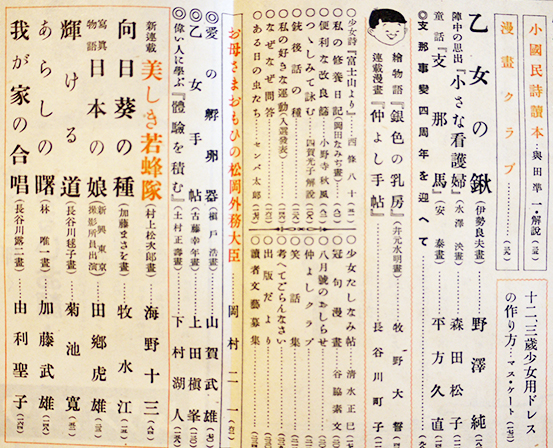 小國民詩讀本…與田準一・解説…
漫畫クラブ
十二、三歳少女用ドレスの作り方…マス・ケート…
乙女の鍬（伊勢良夫畫）野澤純
陣中の思出『小さな看護婦』（水澤泱畫）森田松子
童話『支那馬』（安泰畫）平方久直
◎支那事變四周年を迎へて
繪物語『銀色の乳房』（井元水明畫）牧野大誓
連載漫畫『仲よし手帖』長谷川町子
◎少女詩『富士山より』…西條八十
◎私の修養日記（岡田なみ畫）
◎便利な改良鋏…小野寺秋風
◎つゝしんで詠む…四賀光子解説
◎銃後話の種
◎私の好きな運動（入選發表）
◎なぜなぜ問答
◎ある日の虫たち…センバ太郎
◎少女たしなみ帖…清水正巳
◎冠句漫畫…谷脇素文
◎八月號のおしらせ
◎仲よしクラブ
◎笑話集
◎考へてごらんなさい
◎出版だより
◎讀者文藝募集
お母さまおもひの松岡外務大臣 岡村二一
◎愛の孵卵器（槇戸浩畫）山賀武雄
◎乙女手帖（古藤幸年畫）上田槇峯
◎偉い人に學ぶ『體驗を積む』（土村正壽畫）下村湖人
新連載 美しき若蜂隊（村上松次郎畫）海野十三
向日葵の種（加藤まさを畫）牧水江
寫眞物語 日本の娘（新興東京撮影所員出演）田鄕虎雄
輝ける道（長谷川毬子畫）菊池寛
あらしの曙（林唯一畫）加藤武雄
我が家の合唱（長谷川露二畫）由利聖子